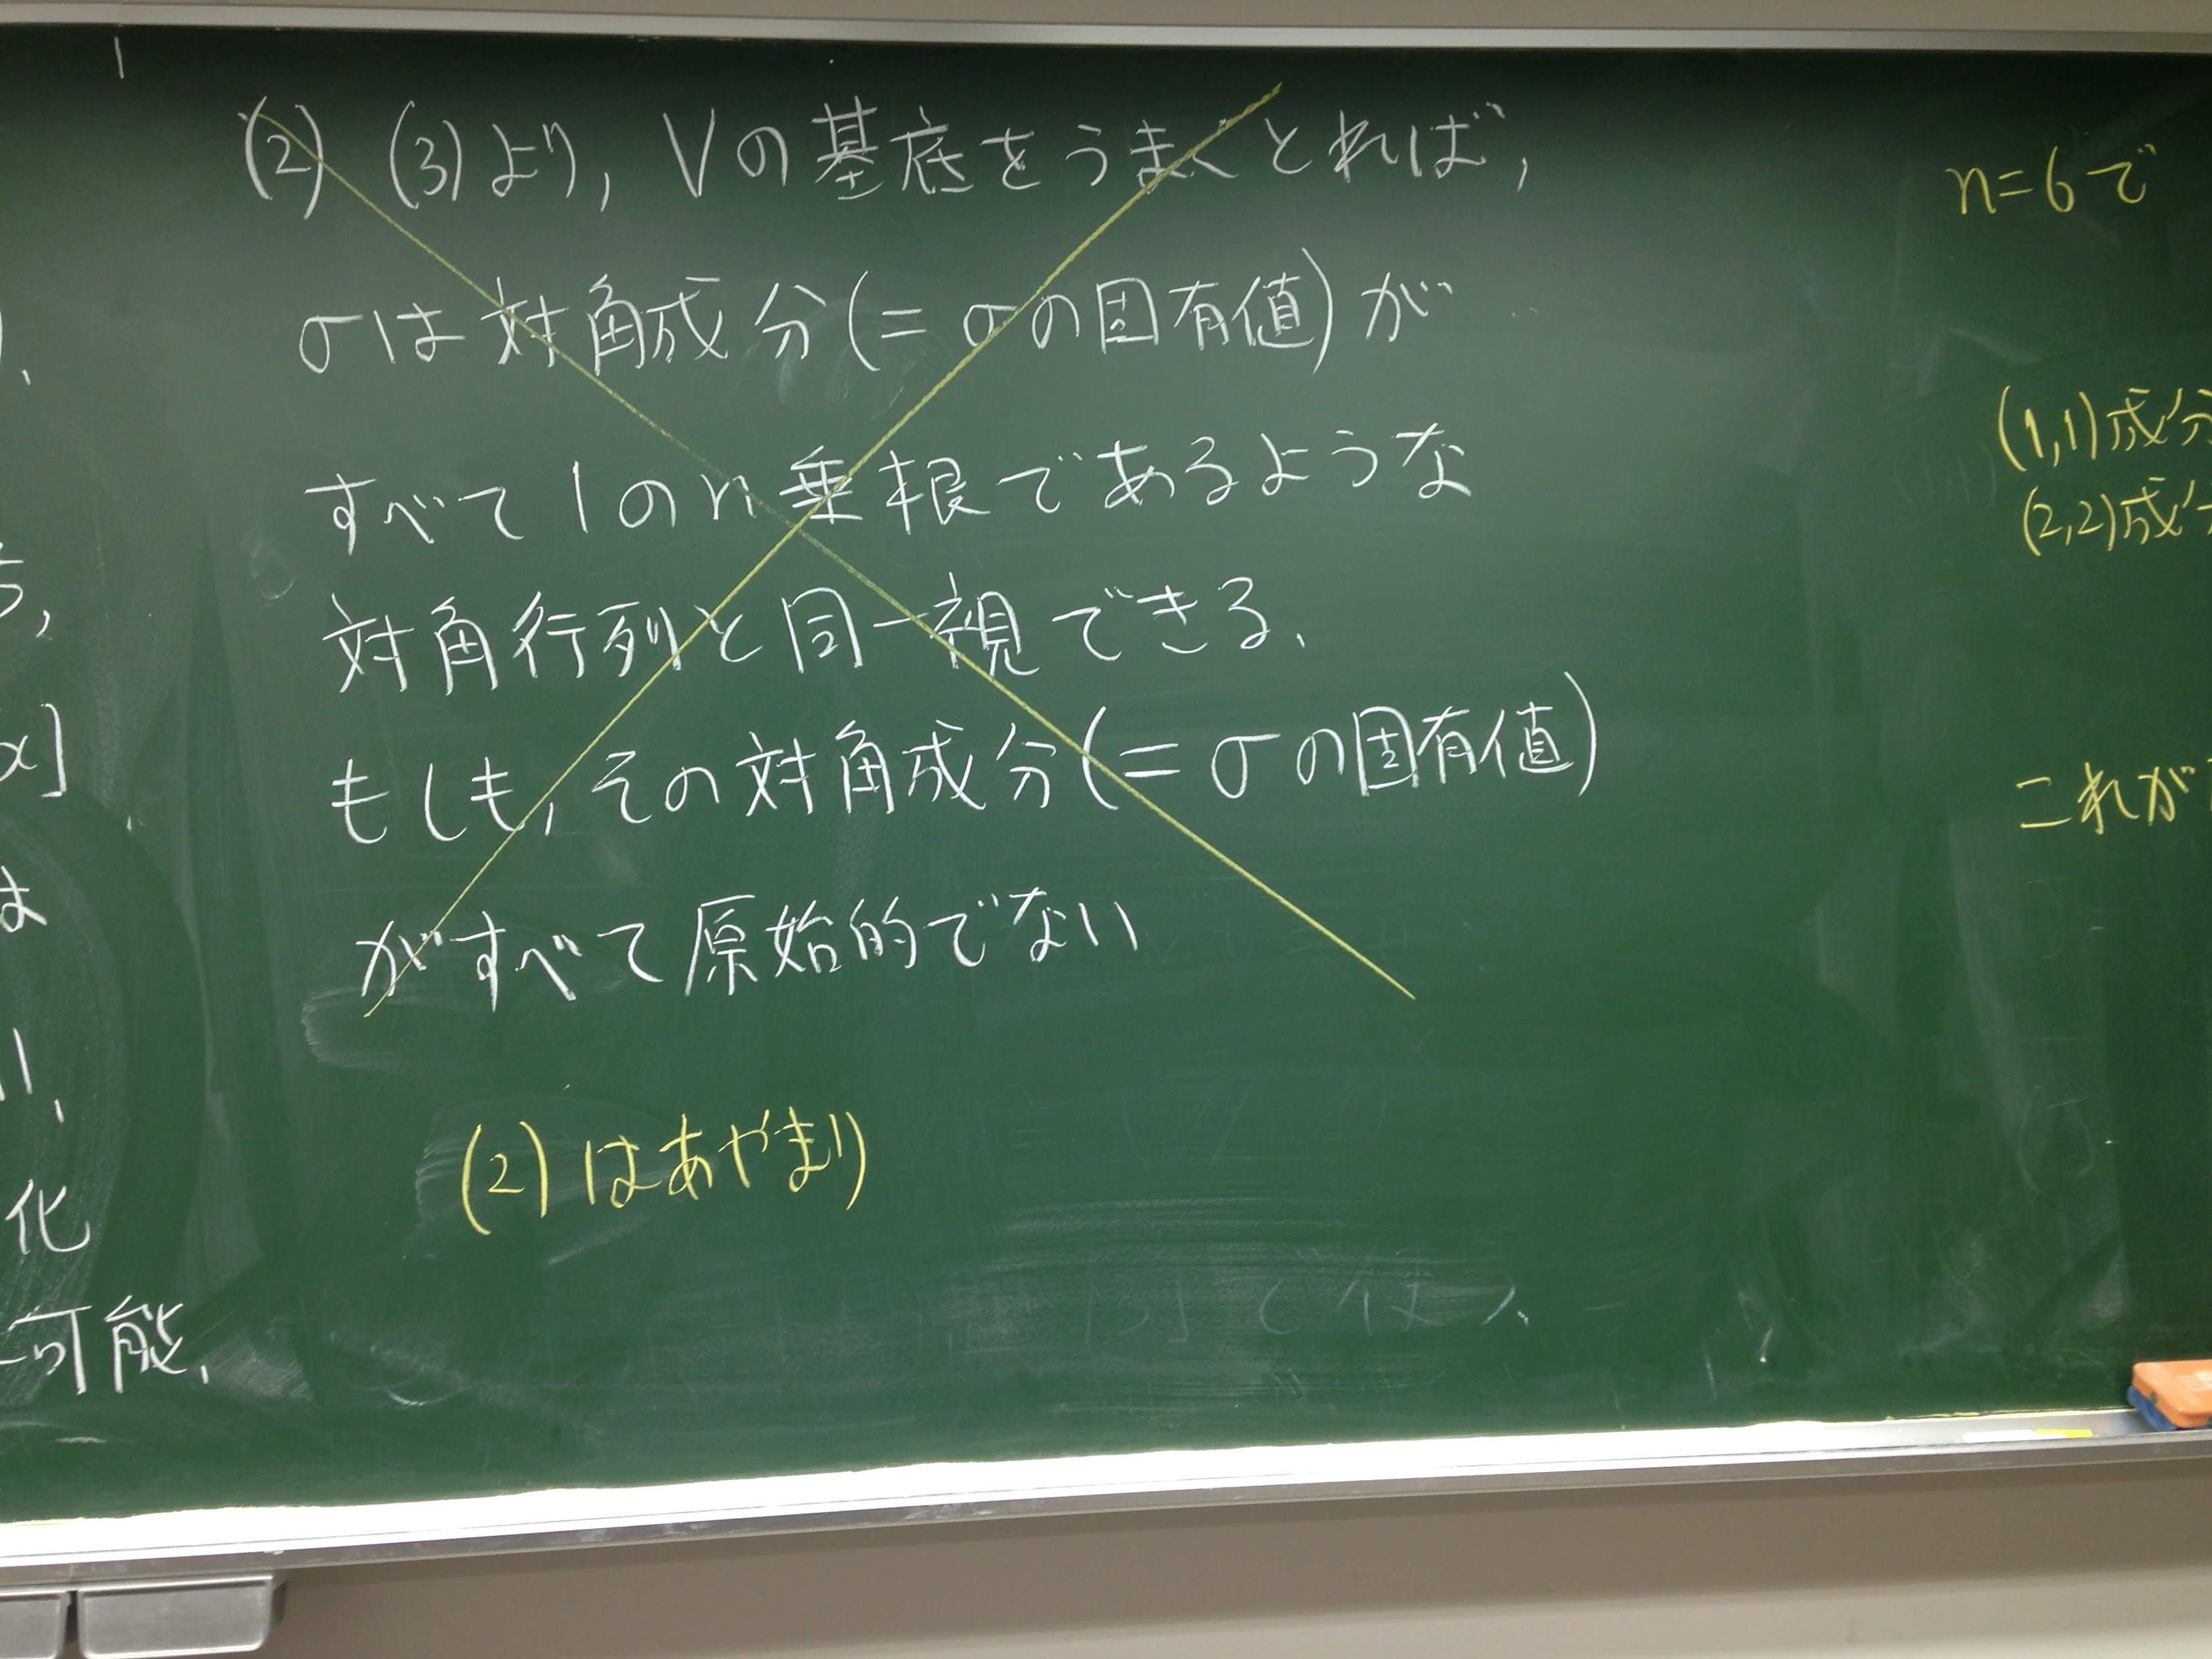 (2) (3)より, Vの基底をうまくとれば,
σは対角成分(= σの固有値)が
すべて1のn乗根であるような
対角行列と同一視できる.
もしも, その対角成分(= σの固有値)
がすべて原始的でない
(2)はあやまり
x]
は
化
可能.
n=6で
(1,1)成分
(2,2)成分
これが